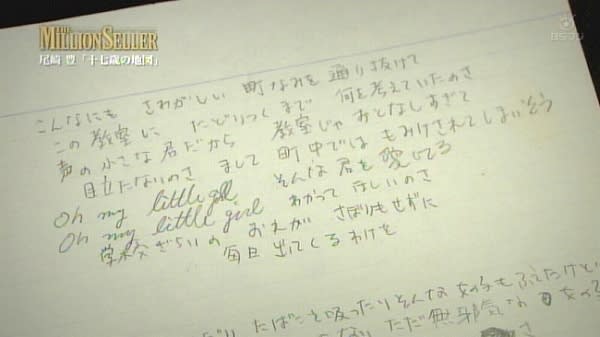 THE
MILLION SELLER
尾崎 豊「十七歳の地図」
BSフジ
こんなにも さわがしい 町なみを 通り抜けて
この教室に たどりつくまで 何を考えていたのさ
声の小さな君だから 教室じゃ おとなしすぎて
目立たないのさ まして 町中では もみけされてしまいそう
Oh my little girl そんな君を 愛してる
Oh my little girl わかって ほしいのさ
学校ぎらいの おれが さぼりもせずに
毎日 出てくるわけを
たばこを吸ったりそんな女の子もふえたけど
ただ無邪気な